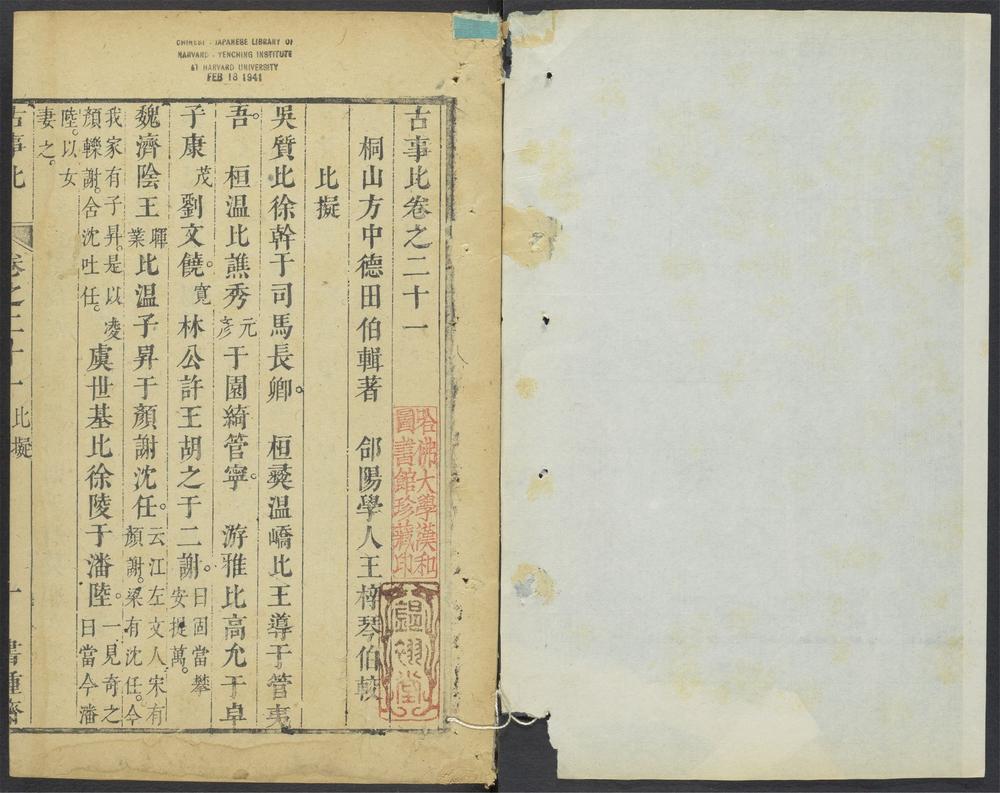 CHINESE - JAPANESE LIBRARY OF
HARVARD - YENCHING INSTITUTE
AT HARVARD UNIVERSITY
FEB 18 1941
古事比卷之二十一
桐山方中德田伯輯著　郃陽學人王梓琴伯較
比擬
吳質比徐幹于司馬長卿。　桓彛温嶠比王導于管夷
吾。　桓温比譙秀元彥于園綺管寧。　游雅比高允于卓
子康茂劉文饒。寬　林公許王胡之于二謝。曰固當攀安提萬。
魏濟陰王暉業比温子昇于顏謝沈任。云江左文人宋有顏謝。梁有沈任。今
我家有子昇。是以凌顏轢謝。含沈吐任。　虞世基比徐陵于潘陸。一見奇之曰當今潘
陸。以女妻之。
古事比　卷之二十一　比擬　一　書種齋
哈佛大學漢和
圖書館珍藏印